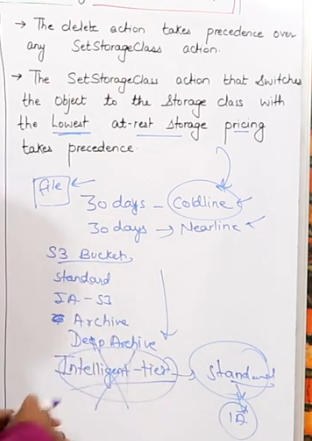 → The delete action takes precedence over
any SetStorageClass action.
→ The SetStorageClass action that switches
the object to the storage class with
the lowest at-rest storage pricing
takes precedence.
file
30 days - Coldline
30 days → Nearline
S3 Bucket
Standard
IA - S3
Archive
Deep Archive
Intelligent-tier → Standard
IA